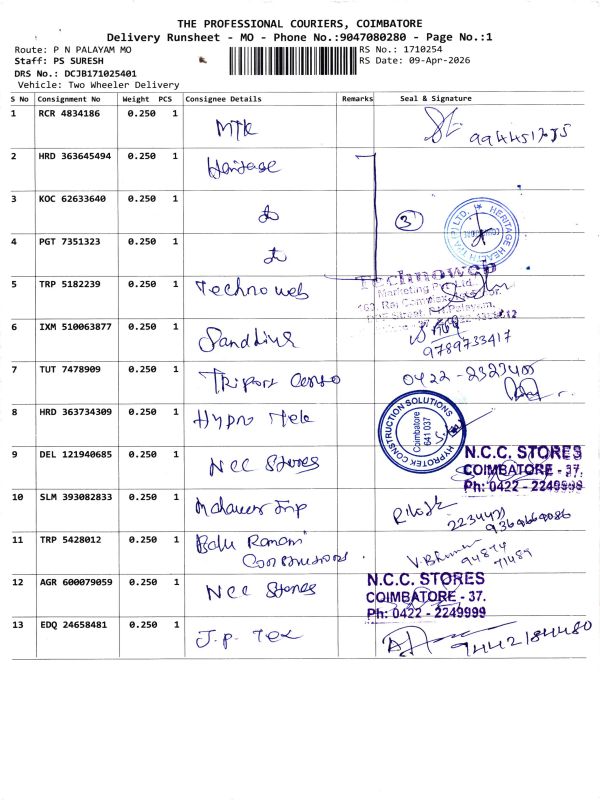 THE PROFESSIONAL COURIERS, COIMBATORE
Delivery Runsheet - MO - Phone No.:9047080280 - Page No.:1
Route: P N PALAYAM MO
RS No.: 1710254
Staff: PS SURESH
RS Date: 09-Apr-2026
DRS No.: DCJB171025401
Vehicle: Two Wheeler Delivery
S No Consignment No Weight PCS Consignee Details Remarks Seal & Signature
1 RCR 4834186 0.250 1 MTK
2 HRD 363645494 0.250 1 Heritage
3 KOC 62633640 0.250 1 3
HERITAGE HEALTH
4 PGT 7351323 0.250 1
5 TRP 5182239 0.250 1 Technoweb
Technoweb
Marketing
6 IXM 510063877 0.250 1
9789733417
7 TUT 7478909 0.250 1
8 HRD 363734309 0.250 1 Hypro Tek
HYPROTEK CONSTRUCTION SOLUTIONS
Coimbatore
641 037
9 DEL 121940685 0.250 1 NCC Stores
N.C.C. STORES
COIMBATORE - 37.
Ph: 0422 - 2249999
10 SLM 393082833 0.250 1
11 TRP 5428012 0.250 1
12 AGR 600079059 0.250 1 NCC Stores
N.C.C. STORES
COIMBATORE - 37.
Ph: 0422 - 2249999
13 EDQ 24658481 0.250 1 J.P. Tex
9442184480